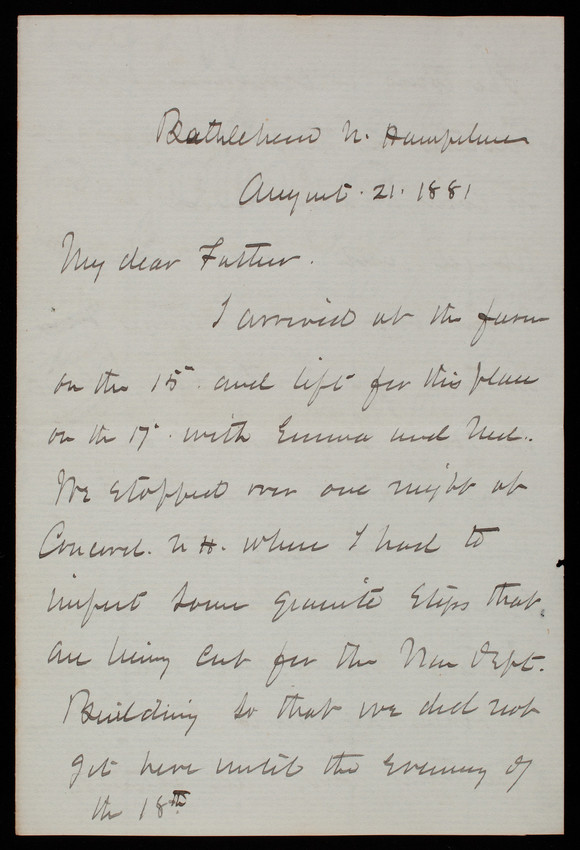 Bethlehem N. Hampshire
August. 21. 1881
My dear Father.
I arrived at the farm
on the 15th. and left for this place
on the 17th. with Emma and Ned.
We stopped over one night at
Concord. N H. where I had to
inspect some granite steps that
are being cut for the War Dept.
Building so that we did not
get here until the evening of
the 18th.